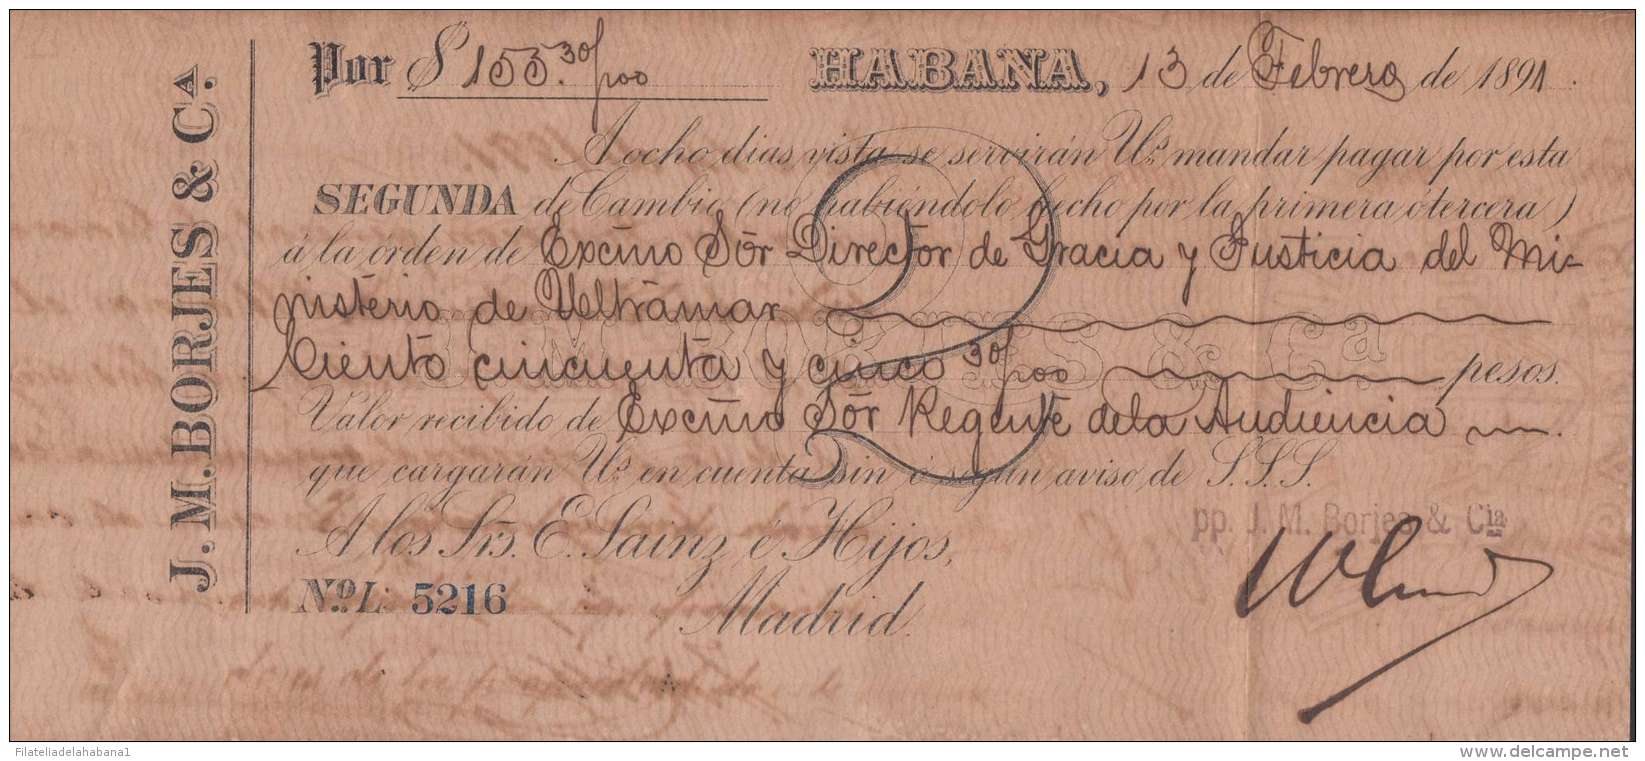 J. M. BORJES & Cª.
Por $ 155.30/poo HABANA, 13 de Febrero de 1891.
A ocho dias vista se servirán Us. mandar pagar por esta
SEGUNDA de Cambio (no habiéndolo hecho por la primera ó tercera)
á la órden de Excmo Sor Director de Gracia y Justicia del Mi-
nisterio de Ultramar
J. M. BORJES & Ca
Ciento cincuenta y cinco 30/poo pesos.
Valor recibido de Excmo Sor Regente de la Audiencia
que cargarán Us. en cuenta sin ó según aviso de S.S.S.
A los Srs. E. Sainz é Hijos,
pp. J. M. Borjes & Cia
Nº. L. 5216
Madrid.
Filateliadelahabana1
www.delcampe.net